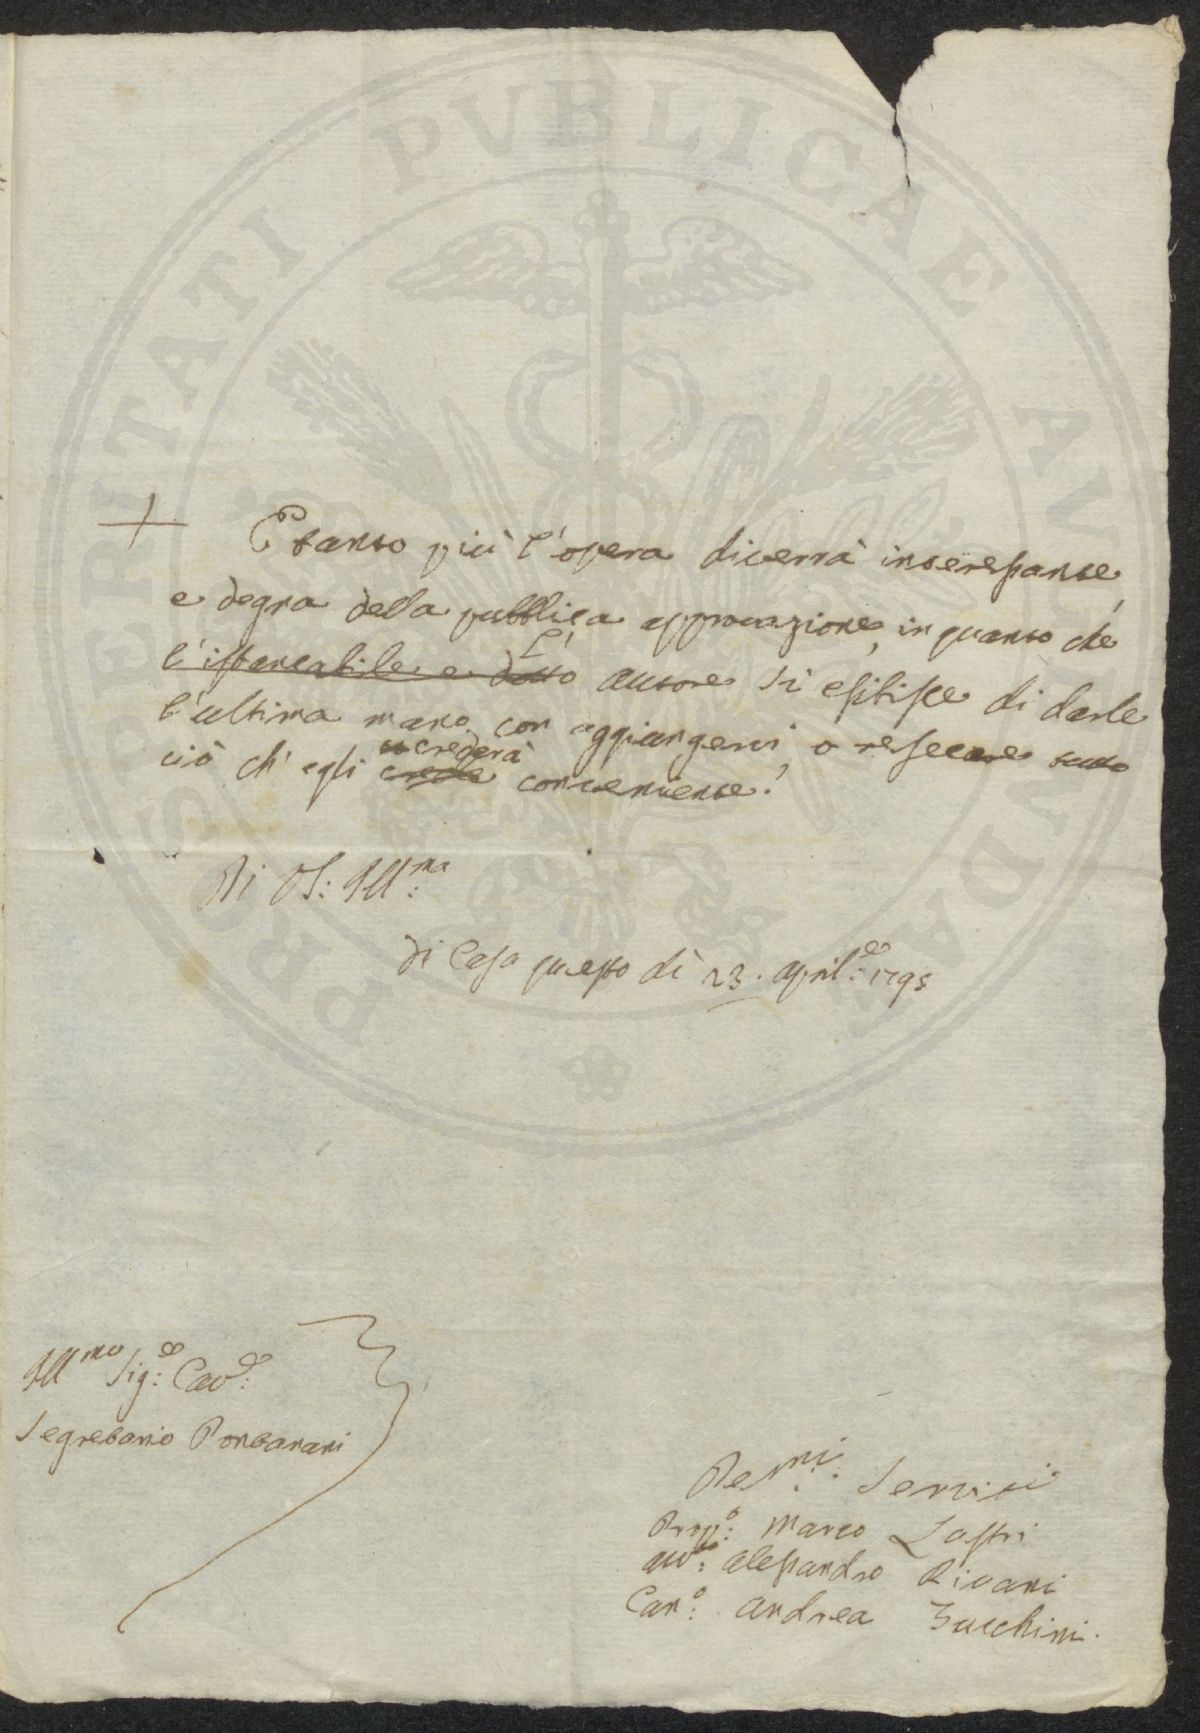 PROSPERITATI PUBLICAE AUGENDAE
+ E tanto più l'opera diverrà interessante,
e degna della pubblica approvazione, in quanto che
l'istancabile e dotto L' autore si esibisce di darle
l'ultima mano con aggiungervi, o resecare tutto
ciò ch' egli crede crederà conveniente.
Di VS: Ill:ma
di Casa questo dì 23. april:e 1795
Ill:mo Sig:e Cav:e
Segretario Pontanari
De:mi Servit:i
Prop:o Marco Lastri
Avv:to Alessandro Rivani
Can:o Andrea Zucchini.